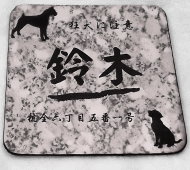 狂犬に注意
鈴木
六丁目五番一号